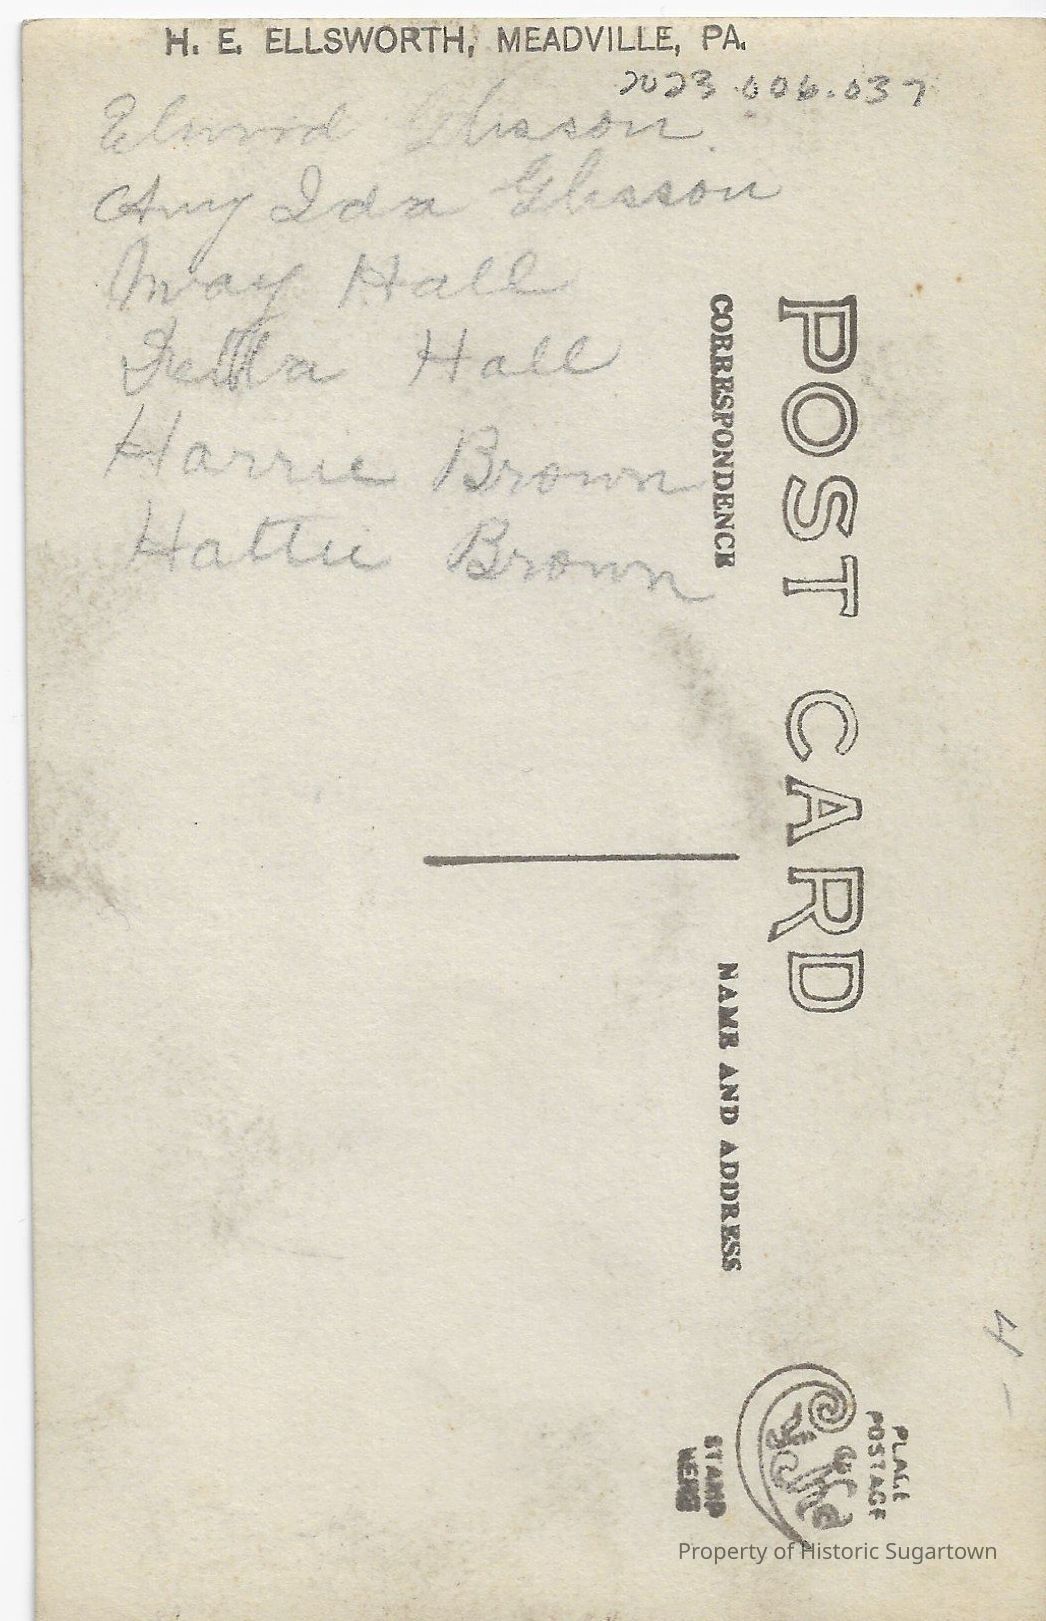 H. E. ELLSWORTH, MEADVILLE, PA.
2023.006.037
Elwood Glisson.
Amy Ida Glisson
May Hall
Hall
Harrie Brown
Hattie Brown
POST CARD
CORRESPONDENCE
NAME AND ADDRESS
PLACE
POSTAGE
STAMP
HERE
Property of Historic Sugartown